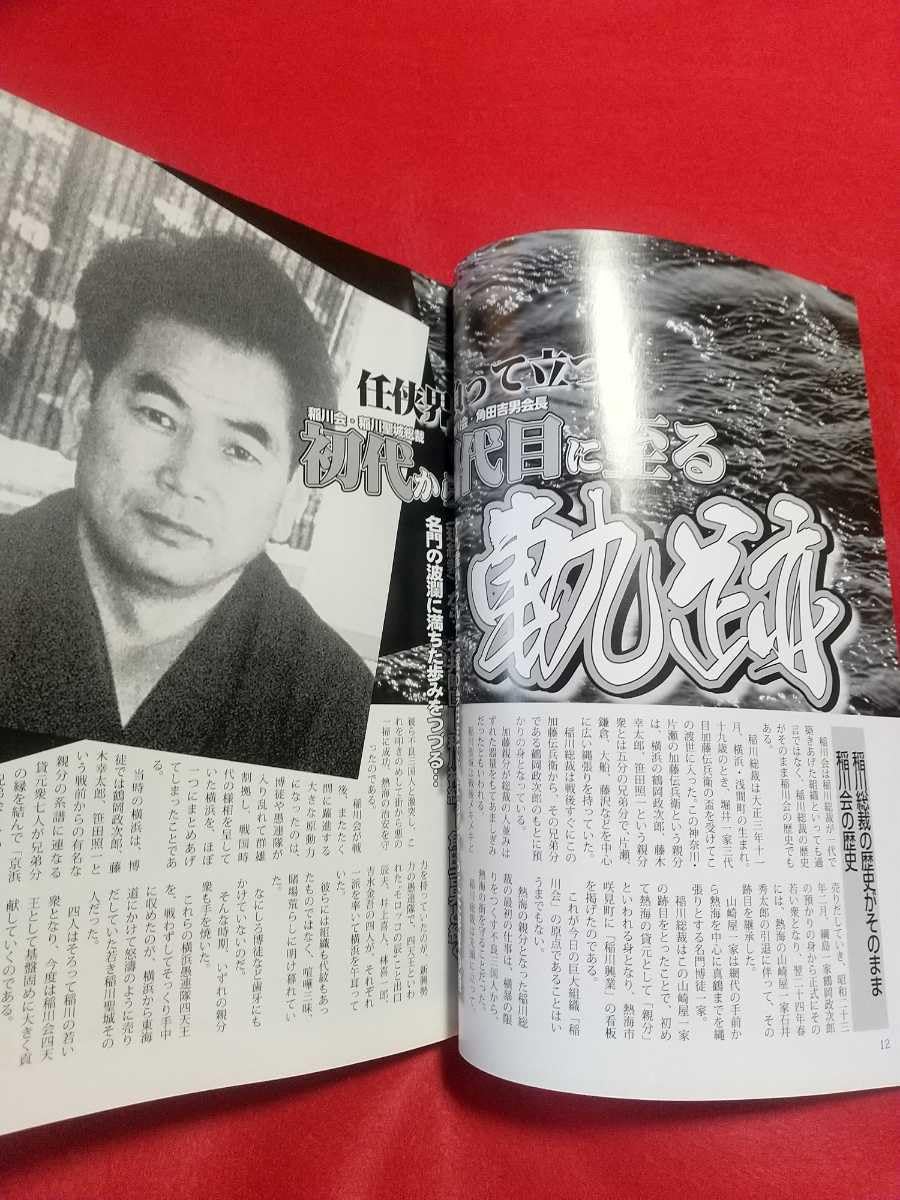 任侠界
って立つ
稲川会・稲川聖城総裁
会・角田吉男会長
初代か
代目に至る
軌跡
名門の波瀾に満ちた歩みをつづる…
稲川総裁の歴史がそのまま
稲川会の歴史
稲川会は稲川総裁が一代で
築きあげた組織といっても過
言ではなく、稲川総裁の歴史
がそのまま稲川会の歴史でも
ある。
稲川総裁は大正三年十一
月、横浜・浅間町の生まれ。
十九歳のとき、堀井一家三代
目加藤伝兵衛の盃を受けてこ
の渡世に入った。この神奈川・
片瀬の加藤伝兵衛という親分
は、横浜の鶴岡政次郎、藤木
幸太郎、笹田照一という親分
衆とは五分の兄弟分で、片瀬、
鎌倉、大船、藤沢などを中心
に広い縄張りを持っていた。
稲川総裁は戦後すぐにこの
加藤伝兵衛から、その兄弟分
である鶴岡政次郎のもとに預
かりの身となっている。
加藤親分が総裁の人並はず
れた器量をもてあましぎみ
だったともいわれる。
売りだしていき、昭和二十三
年二月、綱島一家鶴岡政次郎
の預かりの身から正式にその
若い衆となり、翌二十四年春
には、熱海の山崎屋一家石井
秀太郎の引退に伴って、その
跡目を継承した。
山崎屋一家は網代の手前か
ら熱海を中心に真鶴までを縄
張りとする名門博徒一家。
稲川総裁はこの山崎屋一家
の跡目をとったことで、初め
て熱海の貸元として「親分」
といわれる身となり、熱海市
咲見町に「稲川興業」の看板
を掲げたのである。
これが今日の巨大組織「稲
川会」の原点であることはい
うまでもない。
熱海の親分となった稲川総
裁の最初の仕事は、横暴の限
りをつくす不良三国人から、
熱海の街を守ることだった。
彼ら不良三国人と激突し、こ
れを叩きのめして街から悪の
一掃に成功、熱海の治安を守
ったのである。
その後、稲川会が戦
後、またたく
間に躍進する
大きな原動力
になったのは、
博徒や愚連隊が
入り乱れて群雄
割拠し、戦国時
代の様相を呈して
いた横浜を、ほぼ
一つにまとめあげ
てしまったことであ
る。
当時の横浜は、博
徒では鶴岡政次郎、藤
木幸太郎、笹田照一と
いう戦前からの有名な
親分の系譜に連なる
貸元衆七人が兄弟分
の縁を結んで「京浜
力を持っていたのが、新興勢
力の愚連隊で、四天王といわ
れた。モロッコの辰こと出口
辰夫、井上喜人、林喜一郎、
吉水金吾の四人が、それぞれ
一派を率いて横浜を牛耳って
いた。
彼らには組織も代紋もあっ
たものではなく、喧嘩三昧、
賭場荒らしに明け暮れてい
た。
なにしろ博徒など歯牙にも
かけていないのだ。
そんな時期、いずれの親分
衆も手を焼いた。
これらの横浜愚連隊四天王
を、戦わずしてそっくり手中
に収めたのが、横浜から東海
道にかけて怒濤のように売り
だしていた若き稲川聖城その
人だった。
四人はそろって稲川の若い
衆となり、今度は稲川会四天
王として基盤固めに大きく貢
献していくのである。
12